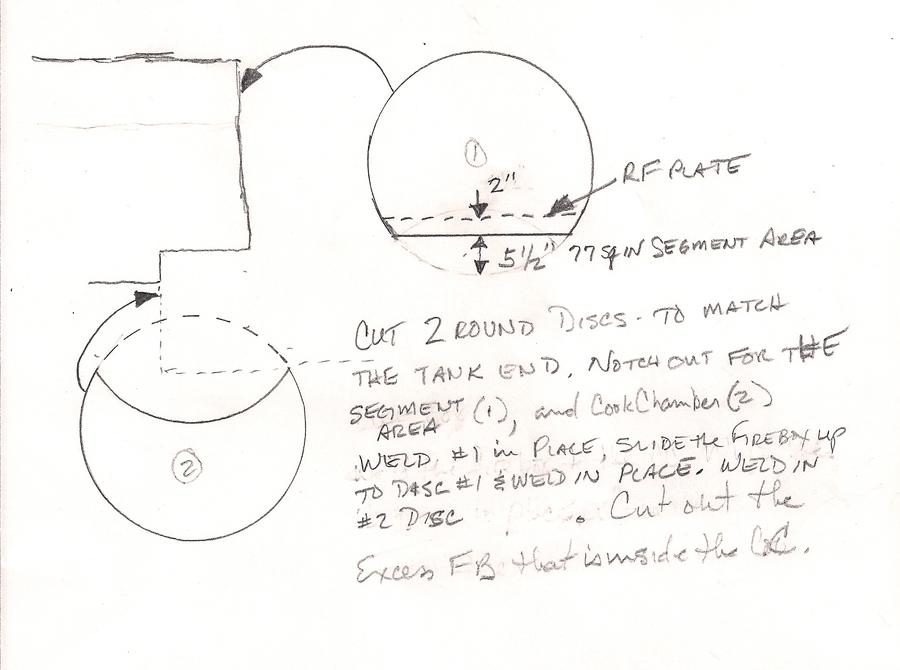 1
2"
RF PLATE
5½" 77 SQ IN SEGMENT AREA
CUT 2 ROUND DISCS - TO MATCH
THE TANK END. NOTCH OUT FOR THE
SEGMENT (1), and Cook Chamber (2)
AREA
WELD #1 in PLACE, SLIDE the FIREBOX up
TO DISC #1 & WELD IN PLACE. WELD IN
#2 DISC . Cut out the
Excess FB that is inside the CC.
2